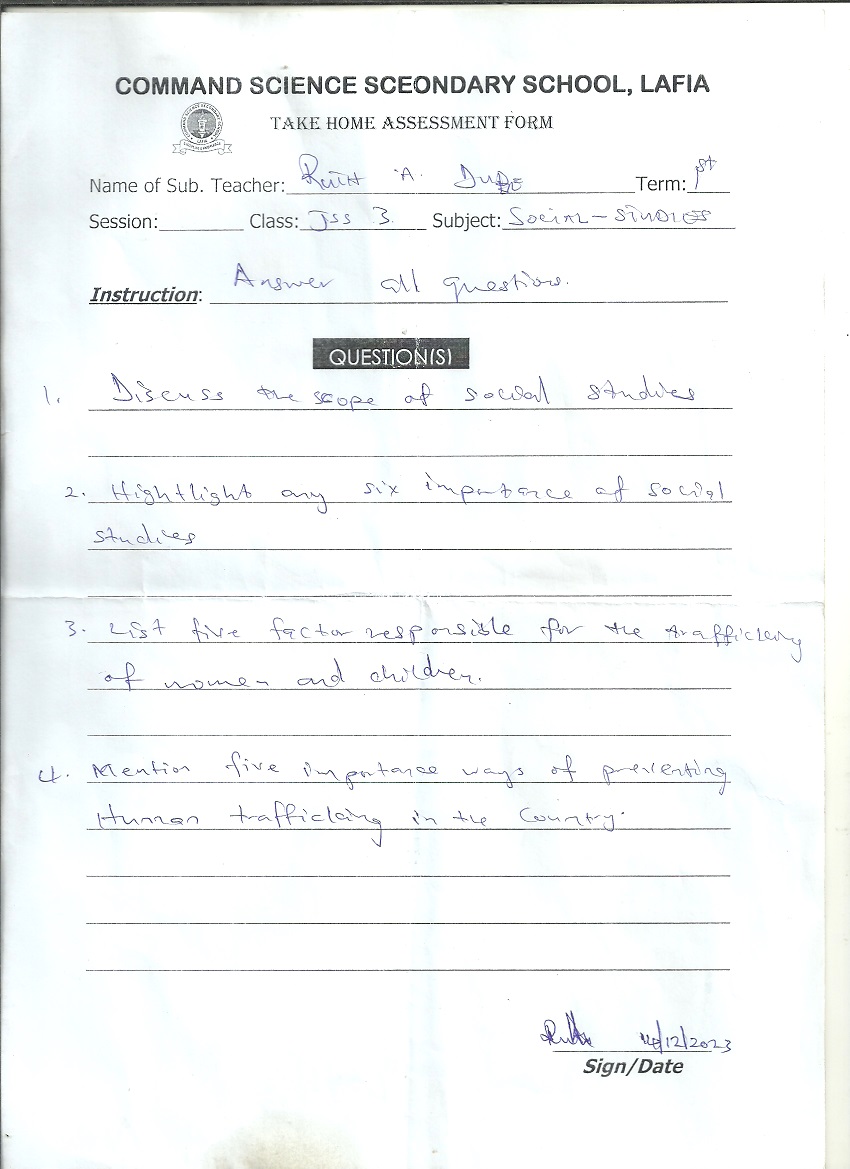 COMMAND SCIENCE SCEONDARY SCHOOL, LAFIA
TAKE HOME ASSESSMENT FORM
Name of Sub. Teacher: Ruth A. Term: 1st
Session: Class: Jss 3. Subject: SOCIAL - STUDIES
Instruction: Answer all questions.
QUESTION(S)
1. Discuss the scope of social studies
2. Hightlight any six importance of social
studies
3. List five factor responsible for the trafficking
of women and children.
4. Mention five importance ways of preventing
Human trafficking in the Country.
/12/2023
Sign/Date